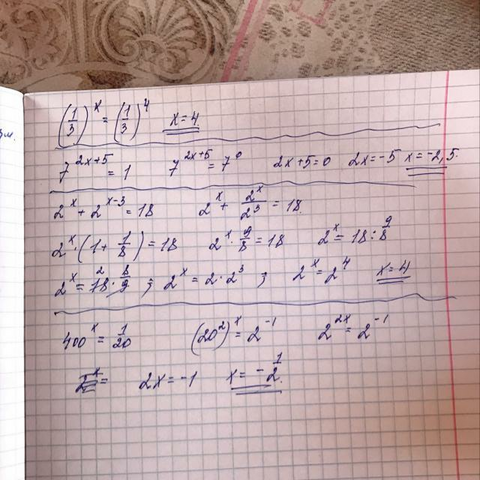 (1/3)^x = (1/3)^4 x = 4
7^(2x+5) = 1 7^(2x+5) = 7^0 2x+5=0 2x=-5 x=-2,5.
2^x + 2^(x-3) = 18 2^x + 2^x/2^3 = 18.
2^x · (1 + 1/8) = 18 2^x · 9/8 = 18 2^x = 18 : 9/8
2^x = 18 · 8/9 ; 2^x = 2 · 2^3 ; 2^x = 2^4 x = 4
400^x = 1/20 (20^2)^x = 2^-1 2^2x = 2^-1
2x = -1 x = -1/2.